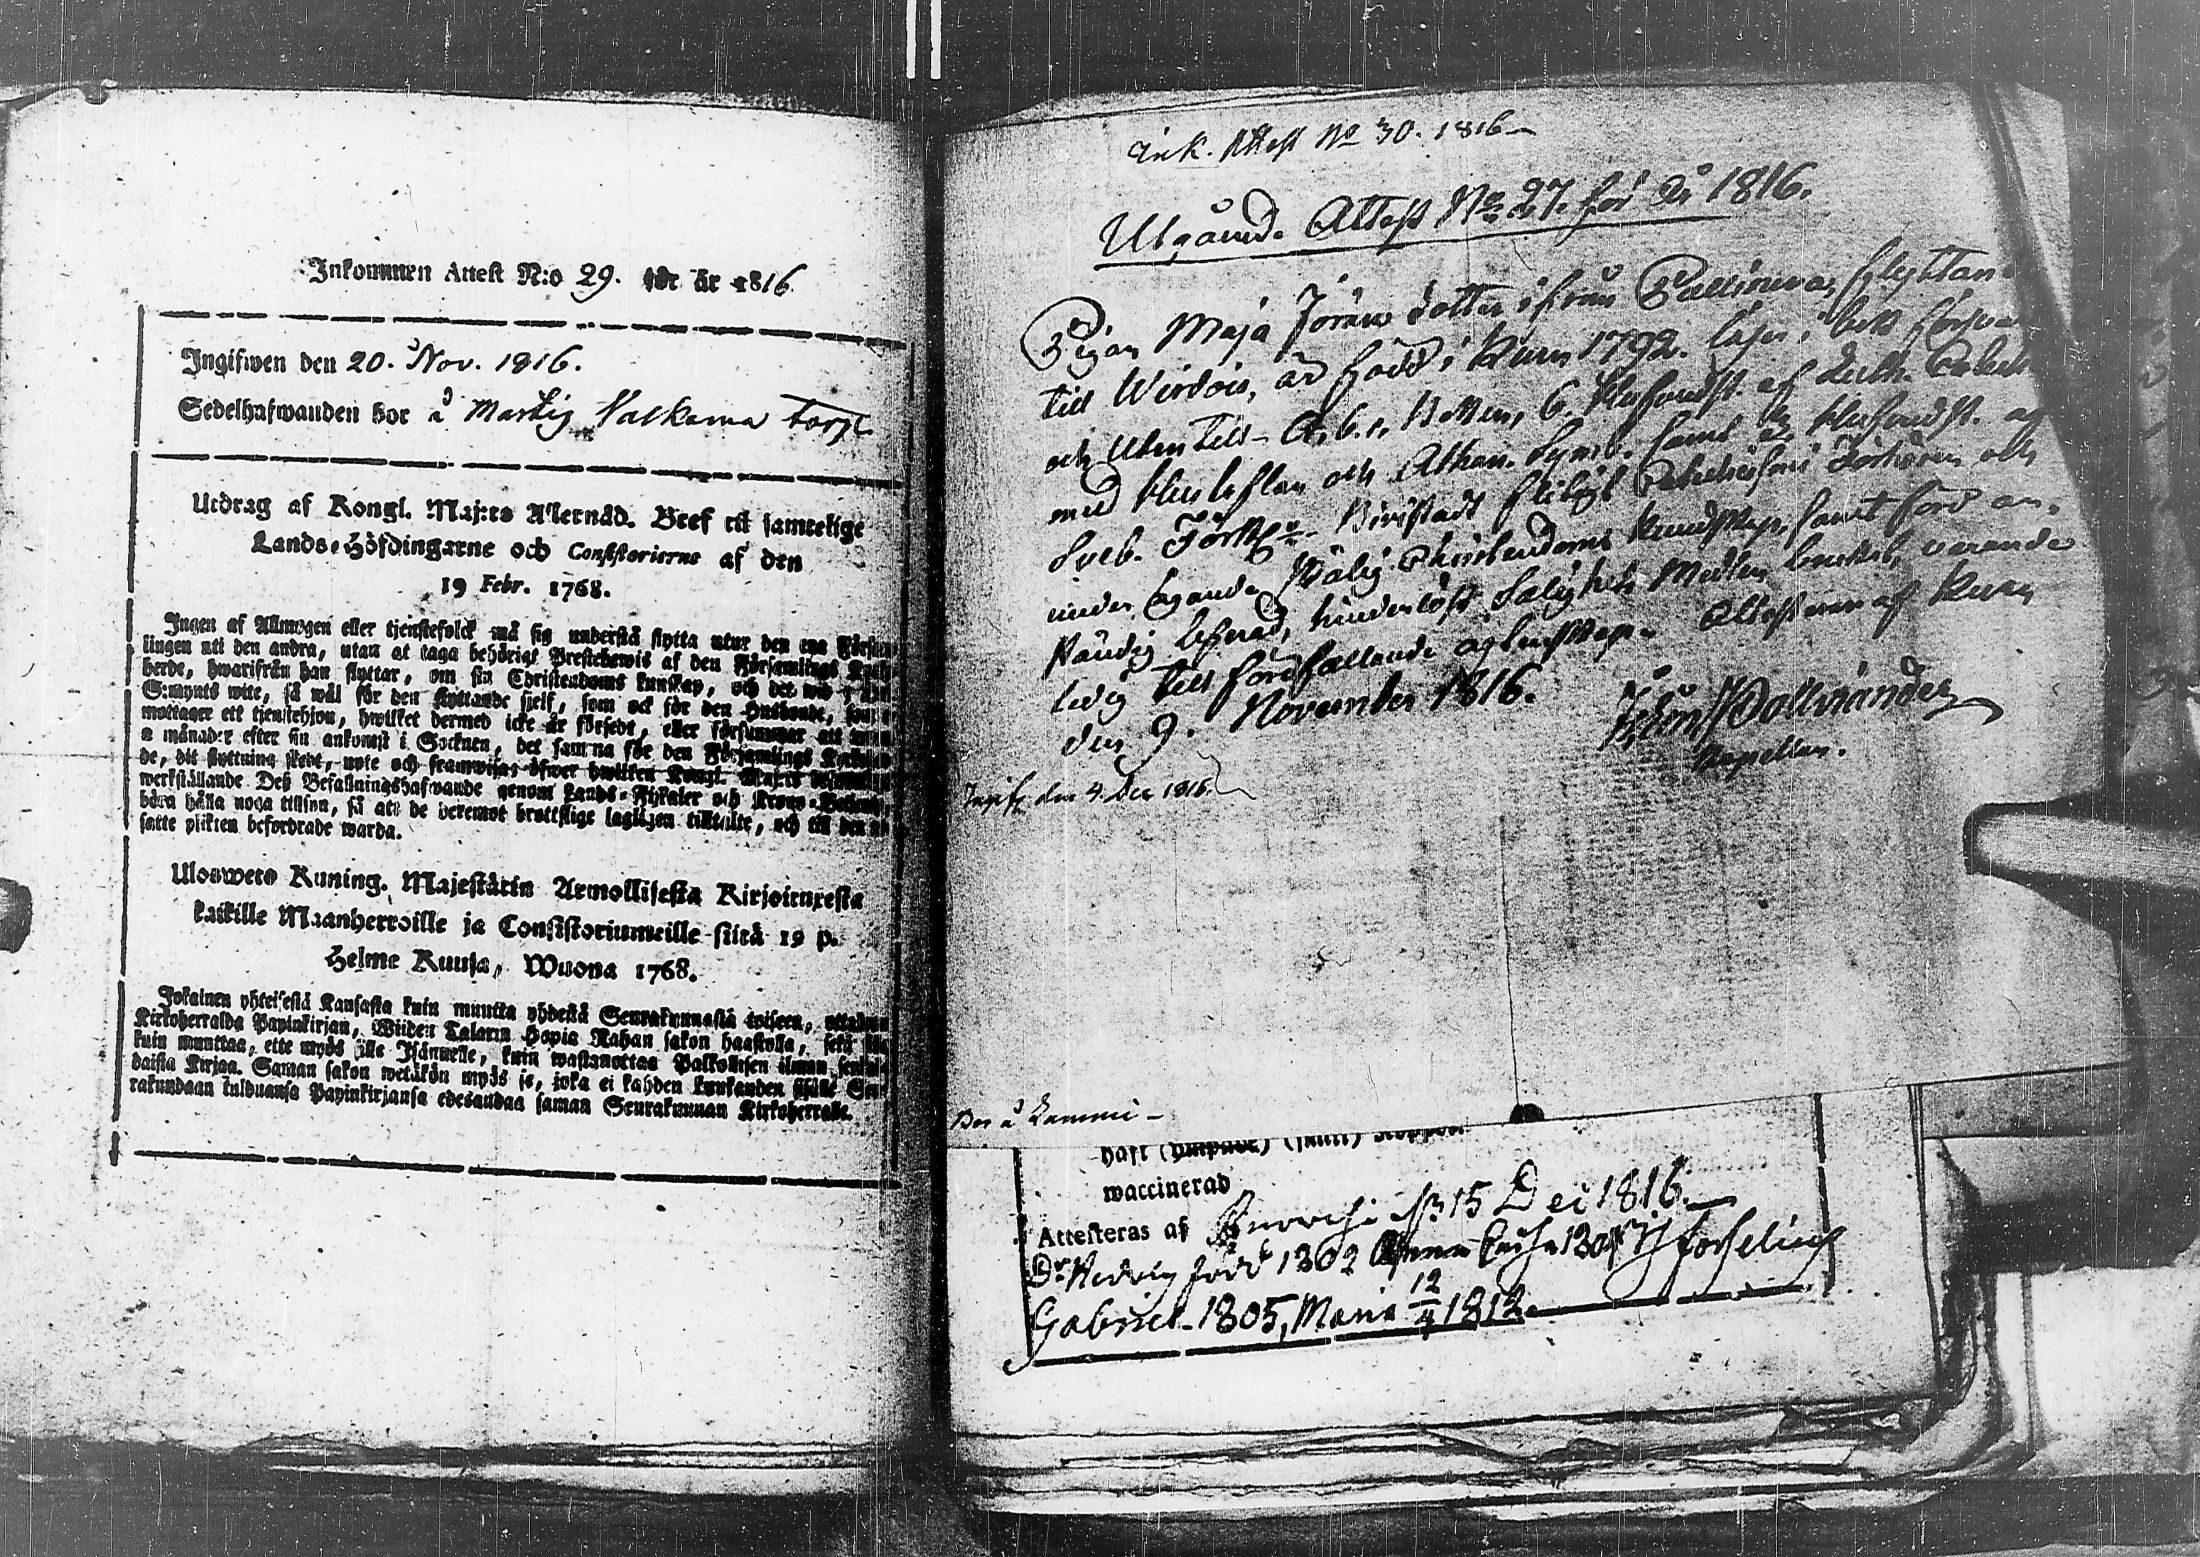 Inkommen Attest N:o 29. för år 1816
Ingifwen den 20. Nov. 1816.
Sedelhafwanden bor å Martig Valkama torp
Utdrag af Kongl. Maj:ts Allernåd. Bref til samtelige
Lands-Höfdingarne och Consistorierne af den
19 Febr. 1768.
Ingen af Allmogen eller tjenstefolck må sig understå flytta utur den ena Försam-
lingen uti den andra, utan at taga behörigt Prestebewis af den Församlings Kyrko-
herde, hwarifrån han flyttar, om sin Christendoms kunskap, och det wid
S:mynts wite, så wäl för den flyttande sjelf, som ock för den Husbonde, som
mottager ett tjenstehjon, hwilket dermed icke är försedt, eller försummar att
månader efter sin ankomst i Socknen, det samma för den Församlings Kyrkoher-
de, dit flyttning skedt, upte och framwisa; öfwer hwilket Kongl. Maj:ts
werkställande Deß Befallningshafwande genom Lands-Fiskaler och Krono-Betjente
böra hålla noga tillsyn, så att de deremot brottslige lagligen tilltalte, och till den ut-
satte plikten befordrade warda.
Ulosweto Kuning. Majestätin Armollisesta Kirjoituxesta
kaikille Maanherroille ja Consistoriumeille siitä 19 p.
Helme Kuusa, Wuona 1768.
Jokainen yhteisestä Kansasta kuin muutta yhdestä Seurakunnasta toiseen, ottakoon
Kirkoherralda Papinkirjan, Wiiden Talarin Hopia Rahan sakon haastolla, sekä
kuin muuttaa, ette myös sille Isännelle, kuin wastanottaa Palkollisen ilman
daista Kirjaa. Saman sakon wetäkön myös se, joka ei kahden kuukauden sisälle Seu-
rakundaan tulduansa Papinkirjansa edesandaa saman Seurakunnan Kirkoherralle.
Ink. Attest No 30. 1816
Utgående Attest No 27. för år 1816.
Pigan Maja Jörans dotter ifrån flyttande
till Wirdois, är född i Kuru 1792. läser i bok försvarl.
och utantill A.b.c. Boken, 6. Hufvudst. af Luth. Catech.
med Hustaflan och Athan. Symb. samt Hufvudst. af
Sveb. Förkl. Bivistadt flitigt förhören och
under Egande Christendoms kundskap, samt förd an-
ständig lefnad, hinderlöst Salighets Medlen varande
ledig till förefallande ägtenskap. Attesterar af Kuru
den 9. November 1816.
Kapellan.
Ingifv. den 4. Dec 1816.
Bor å Lammi
haft (ympade) (samt) koppor
waccinerad
Attesteras af 15 Dec 1816.
Dr Hedvig född 1802 Anna
Gabriel 1805, Maria 12/4 1812.